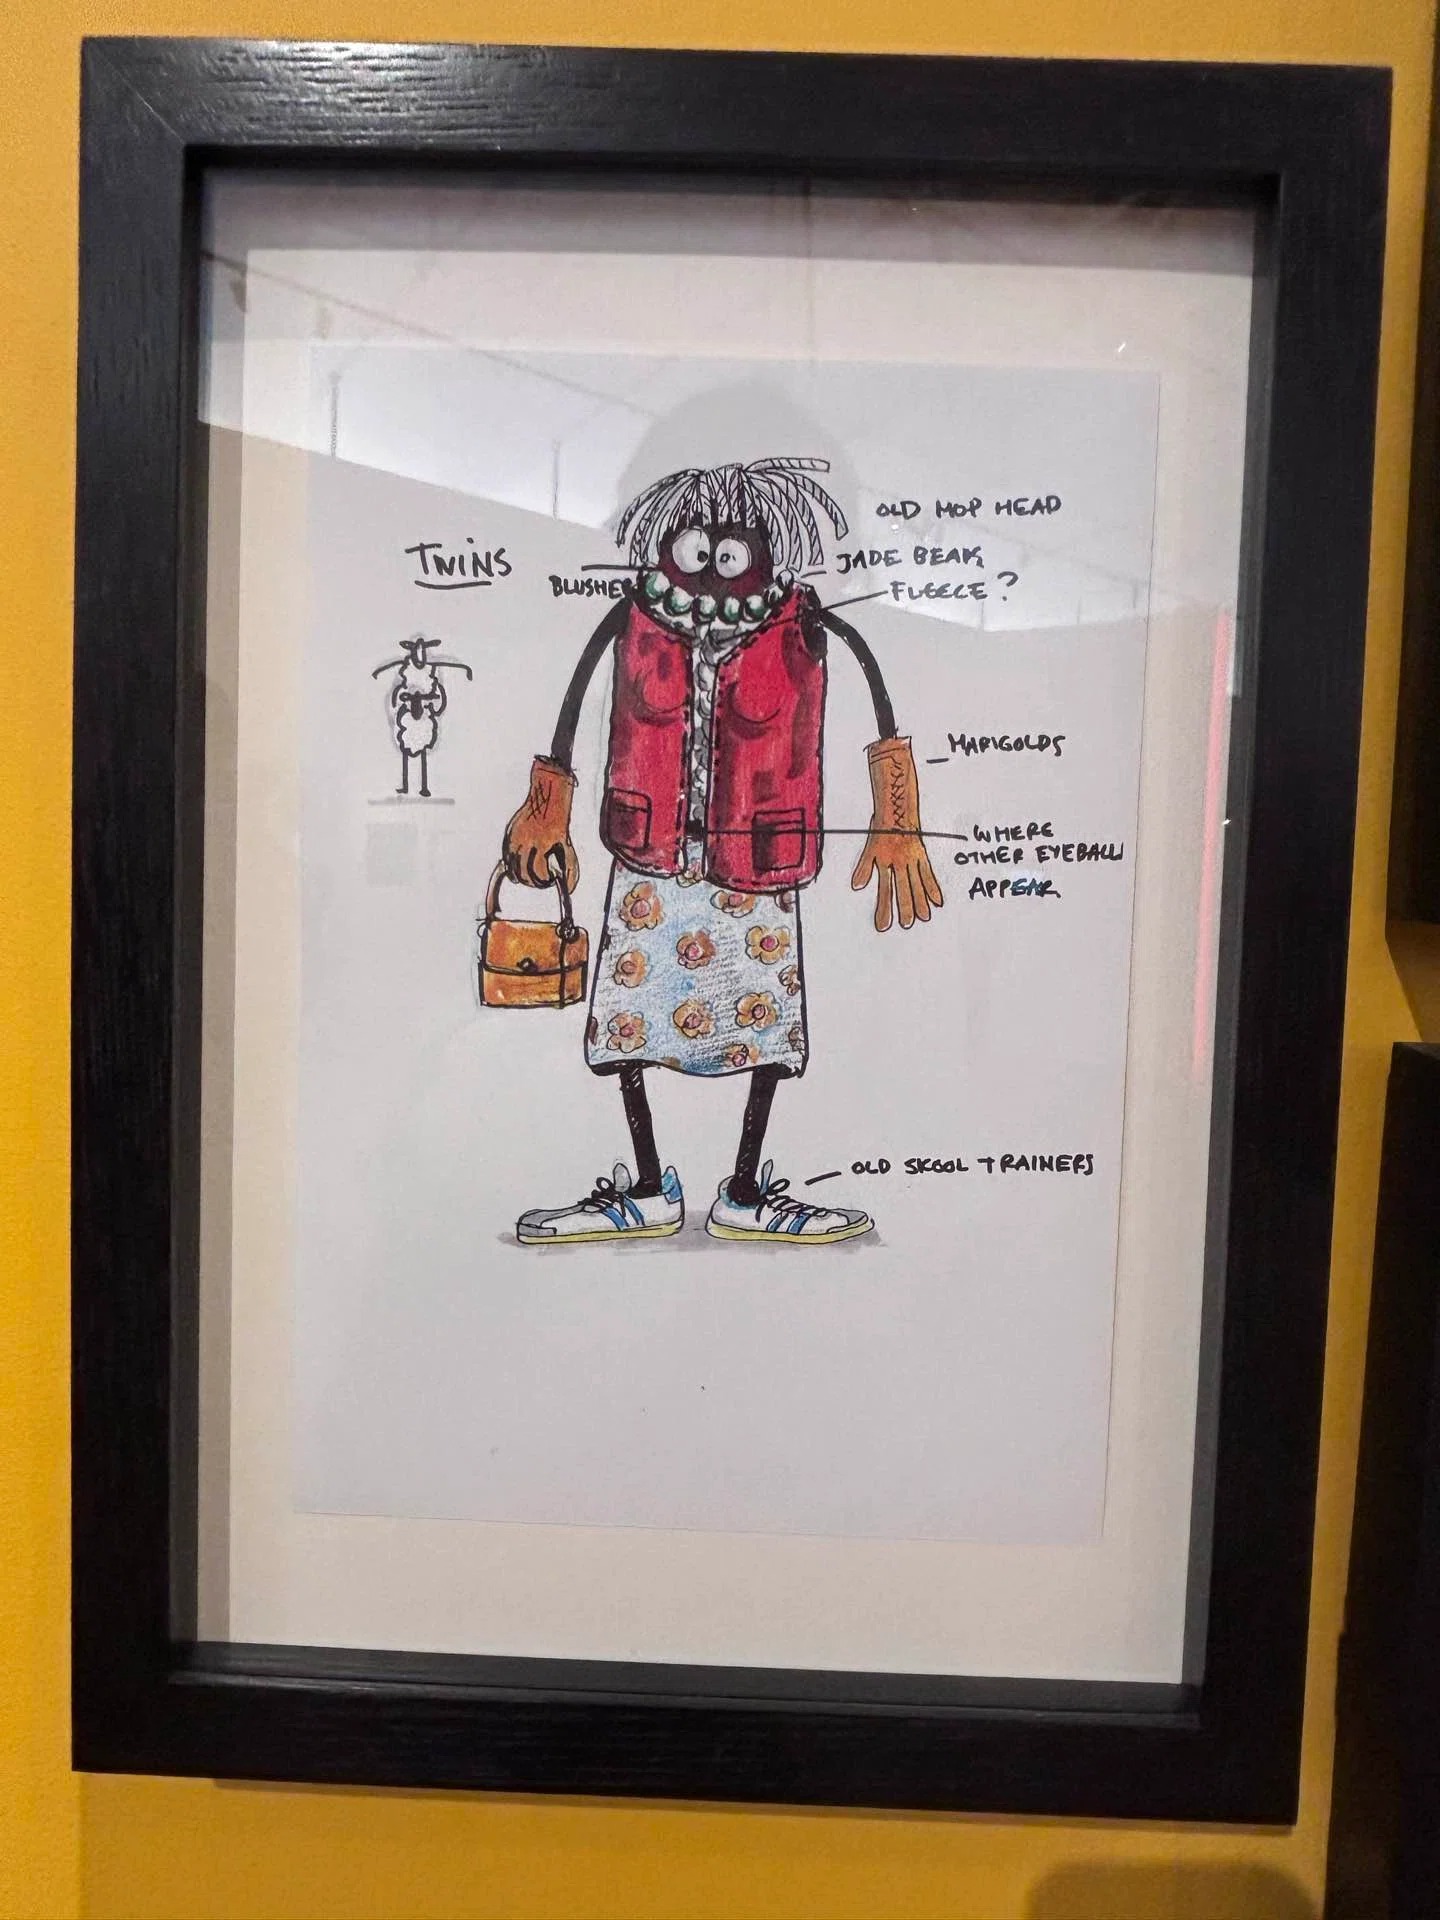 OLD MOP HEAD
TWINS
JADE BEAK
BLUSHER
FLEECE?
MARIGOLDS
WHERE
OTHER EYEBALLS
APPEAR
OLD SKOOL TRAINERS